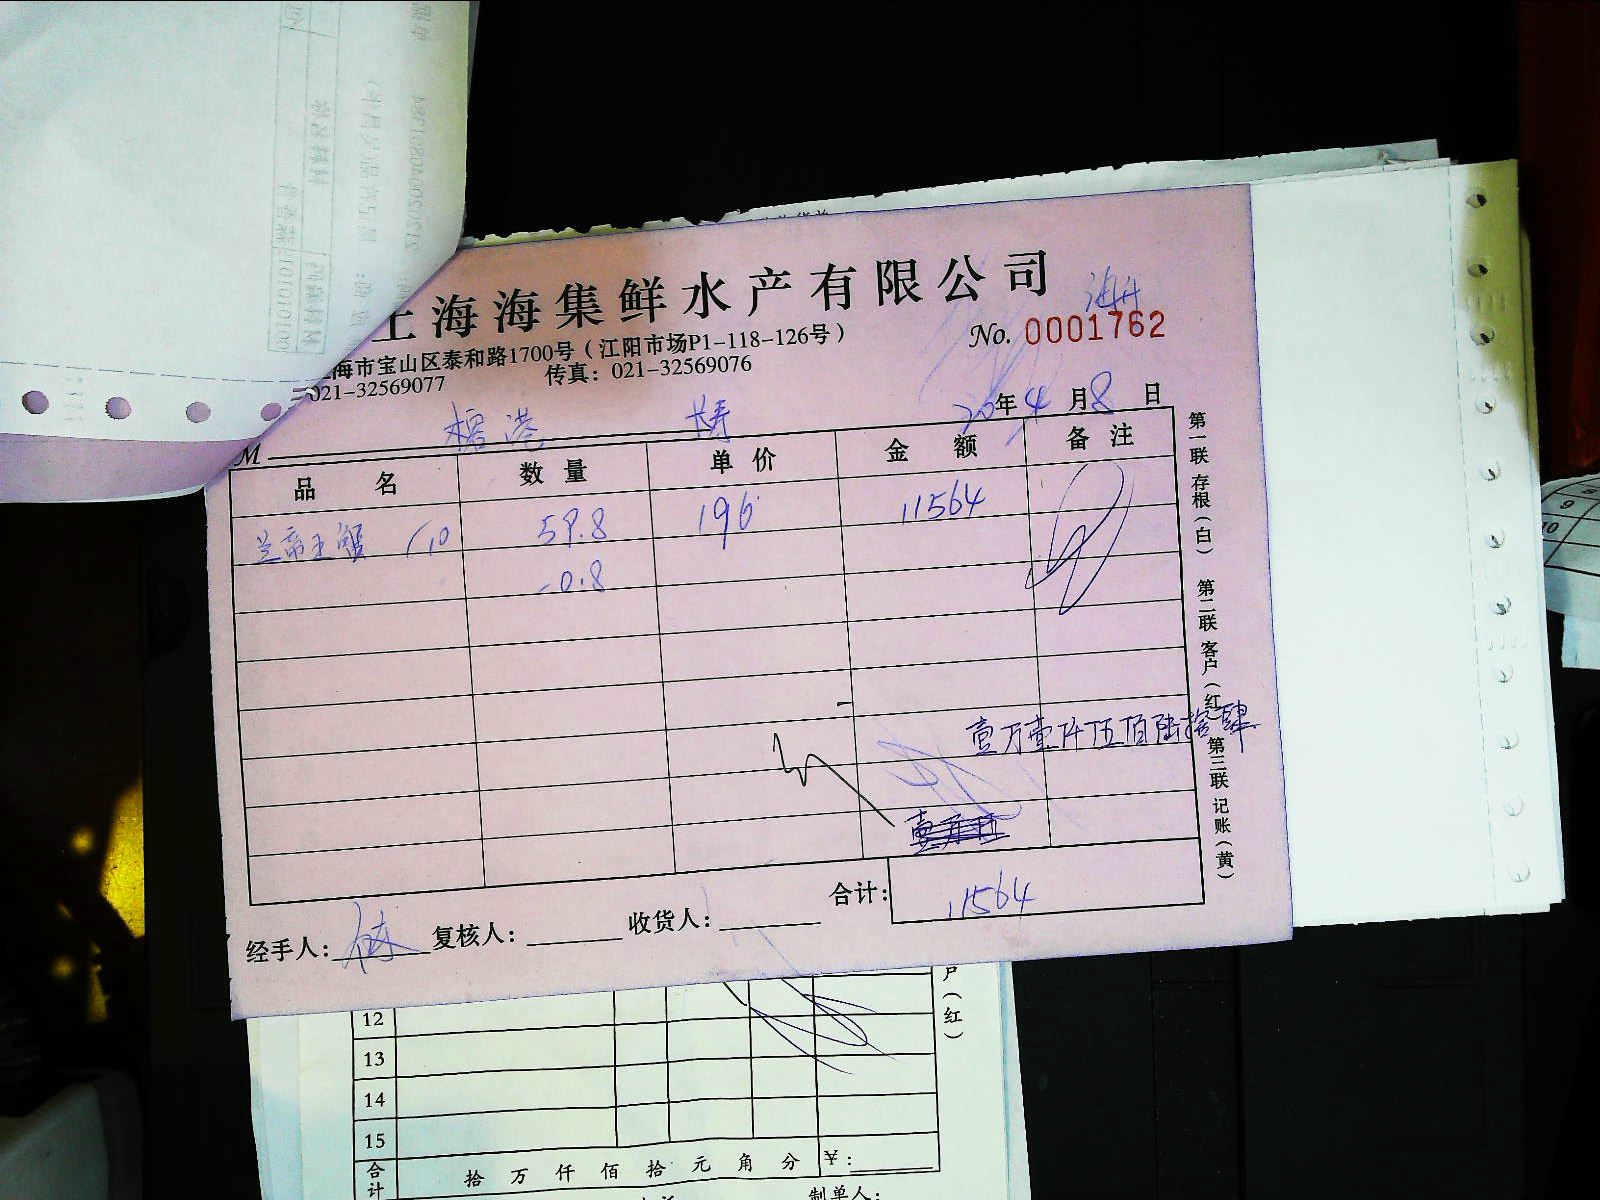 上海海集鲜水产有限公司
海市宝山区泰和路1700号（江阳市场P1-118-126号）
No. 0001762
021-32569077 传真：021-32569076
20年4月8日
M
品名 数量 单价 金额 备注
兰帝王蟹 /10 59.8 196 11564
-0.8
壹万壹仟伍佰陆拾肆
合计：11564
经手人： 复核人： 收货人：
第一联 存根（白） 第二联 客户（红） 第三联 记账（黄）
户（红）
12
13
14
15
合计 拾万仟佰拾元角分 ¥：
制单人：